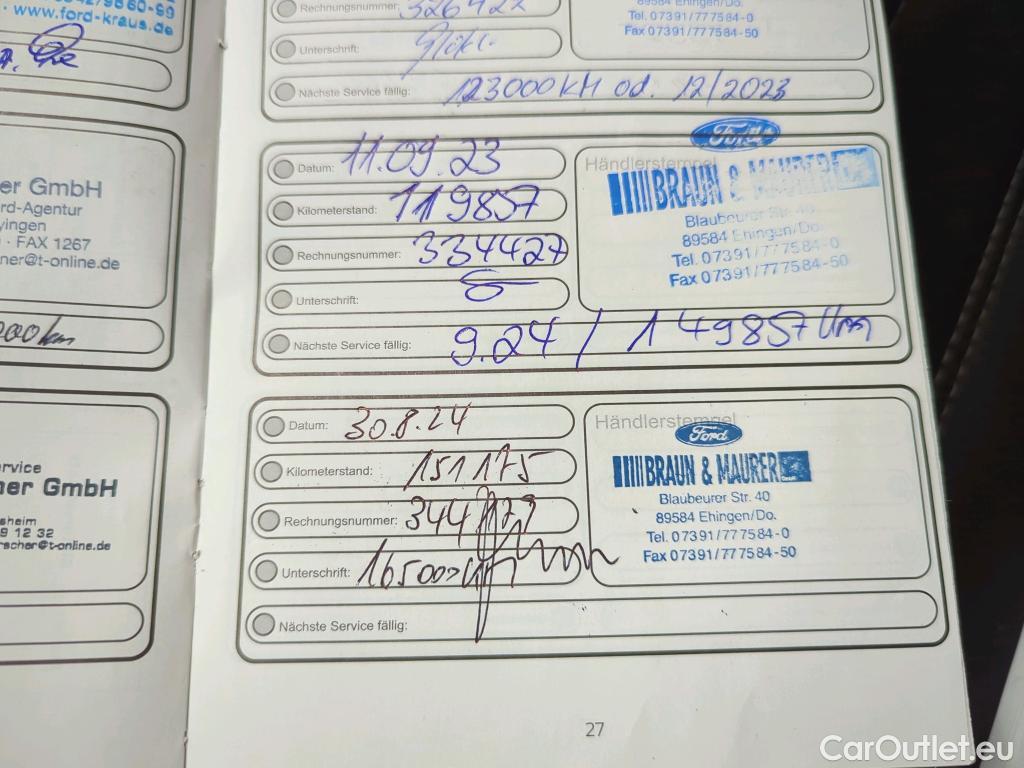 www.ford-kraus.de
er GmbH
rd-Agentur
yingen
· FAX 1267
ner@t-online.de
000 km
ervice
ner GmbH
sheim
9 12 32
rscher@t-online.de
Rechnungsnummer: 326427
Unterschrift:
Nächste Service fällig: 123000 KM od. 12/2023
Tel. 07391/777584-0
Fax 07391/777584-50
Datum: 11.09.23
Kilometerstand: 119857
Rechnungsnummer: 334427
Unterschrift:
Nächste Service fällig: 9.24 / 149857 Km
Händlerstempel
Ford
BRAUN & MAURER
Blaubeurer Str. 40
89584 Ehingen/Do.
Tel. 07391/777584-0
Fax 07391/777584-50
Datum: 30.8.24
Kilometerstand: 151175
Rechnungsnummer: 344
Unterschrift: 165000
Nächste Service fällig:
Händlerstempel
Ford
BRAUN & MAURER
Blaubeurer Str. 40
89584 Ehingen/Do.
Tel. 07391/777584-0
Fax 07391/777584-50
27
CarOutlet.eu